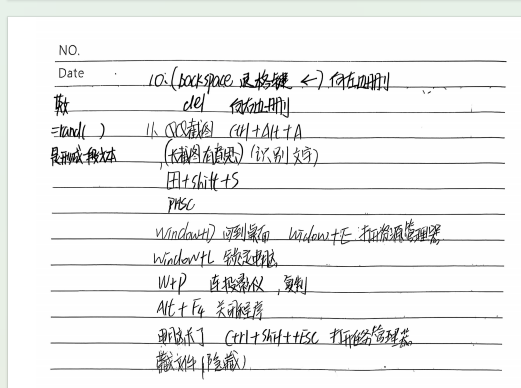 NO.
Date
10. (backspace 退格键 ←) 向左边删
del 向右边删
=rand( )
11. QQ截图 Ctrl+Alt+A
(长截图有意思) (识别文字)
田+shift+S
PrtSC
Window+D 回到桌面 Widow+E 打开资源管理器
Window+L 锁定电脑
W+P 连投影仪, 复制
Alt+F4 关闭程序
电脑卡了 Ctrl+Shift+ESC 打开任务管理器
藏文件 (隐藏)